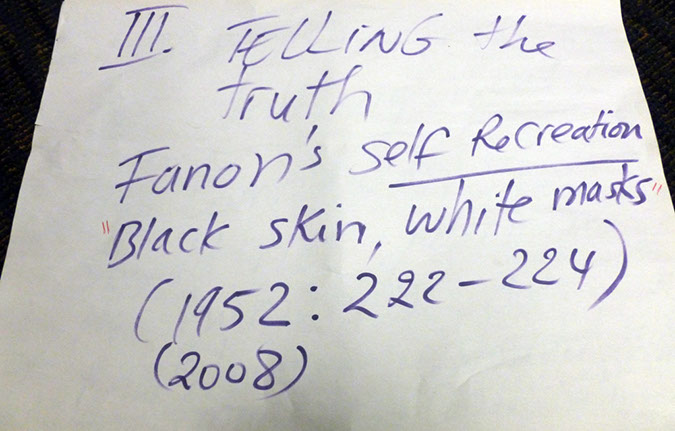 III. TELLiNG the
truth
Fanon's self Recreation
"Black skin, white masks"
(1952: 222-224)
(2008)